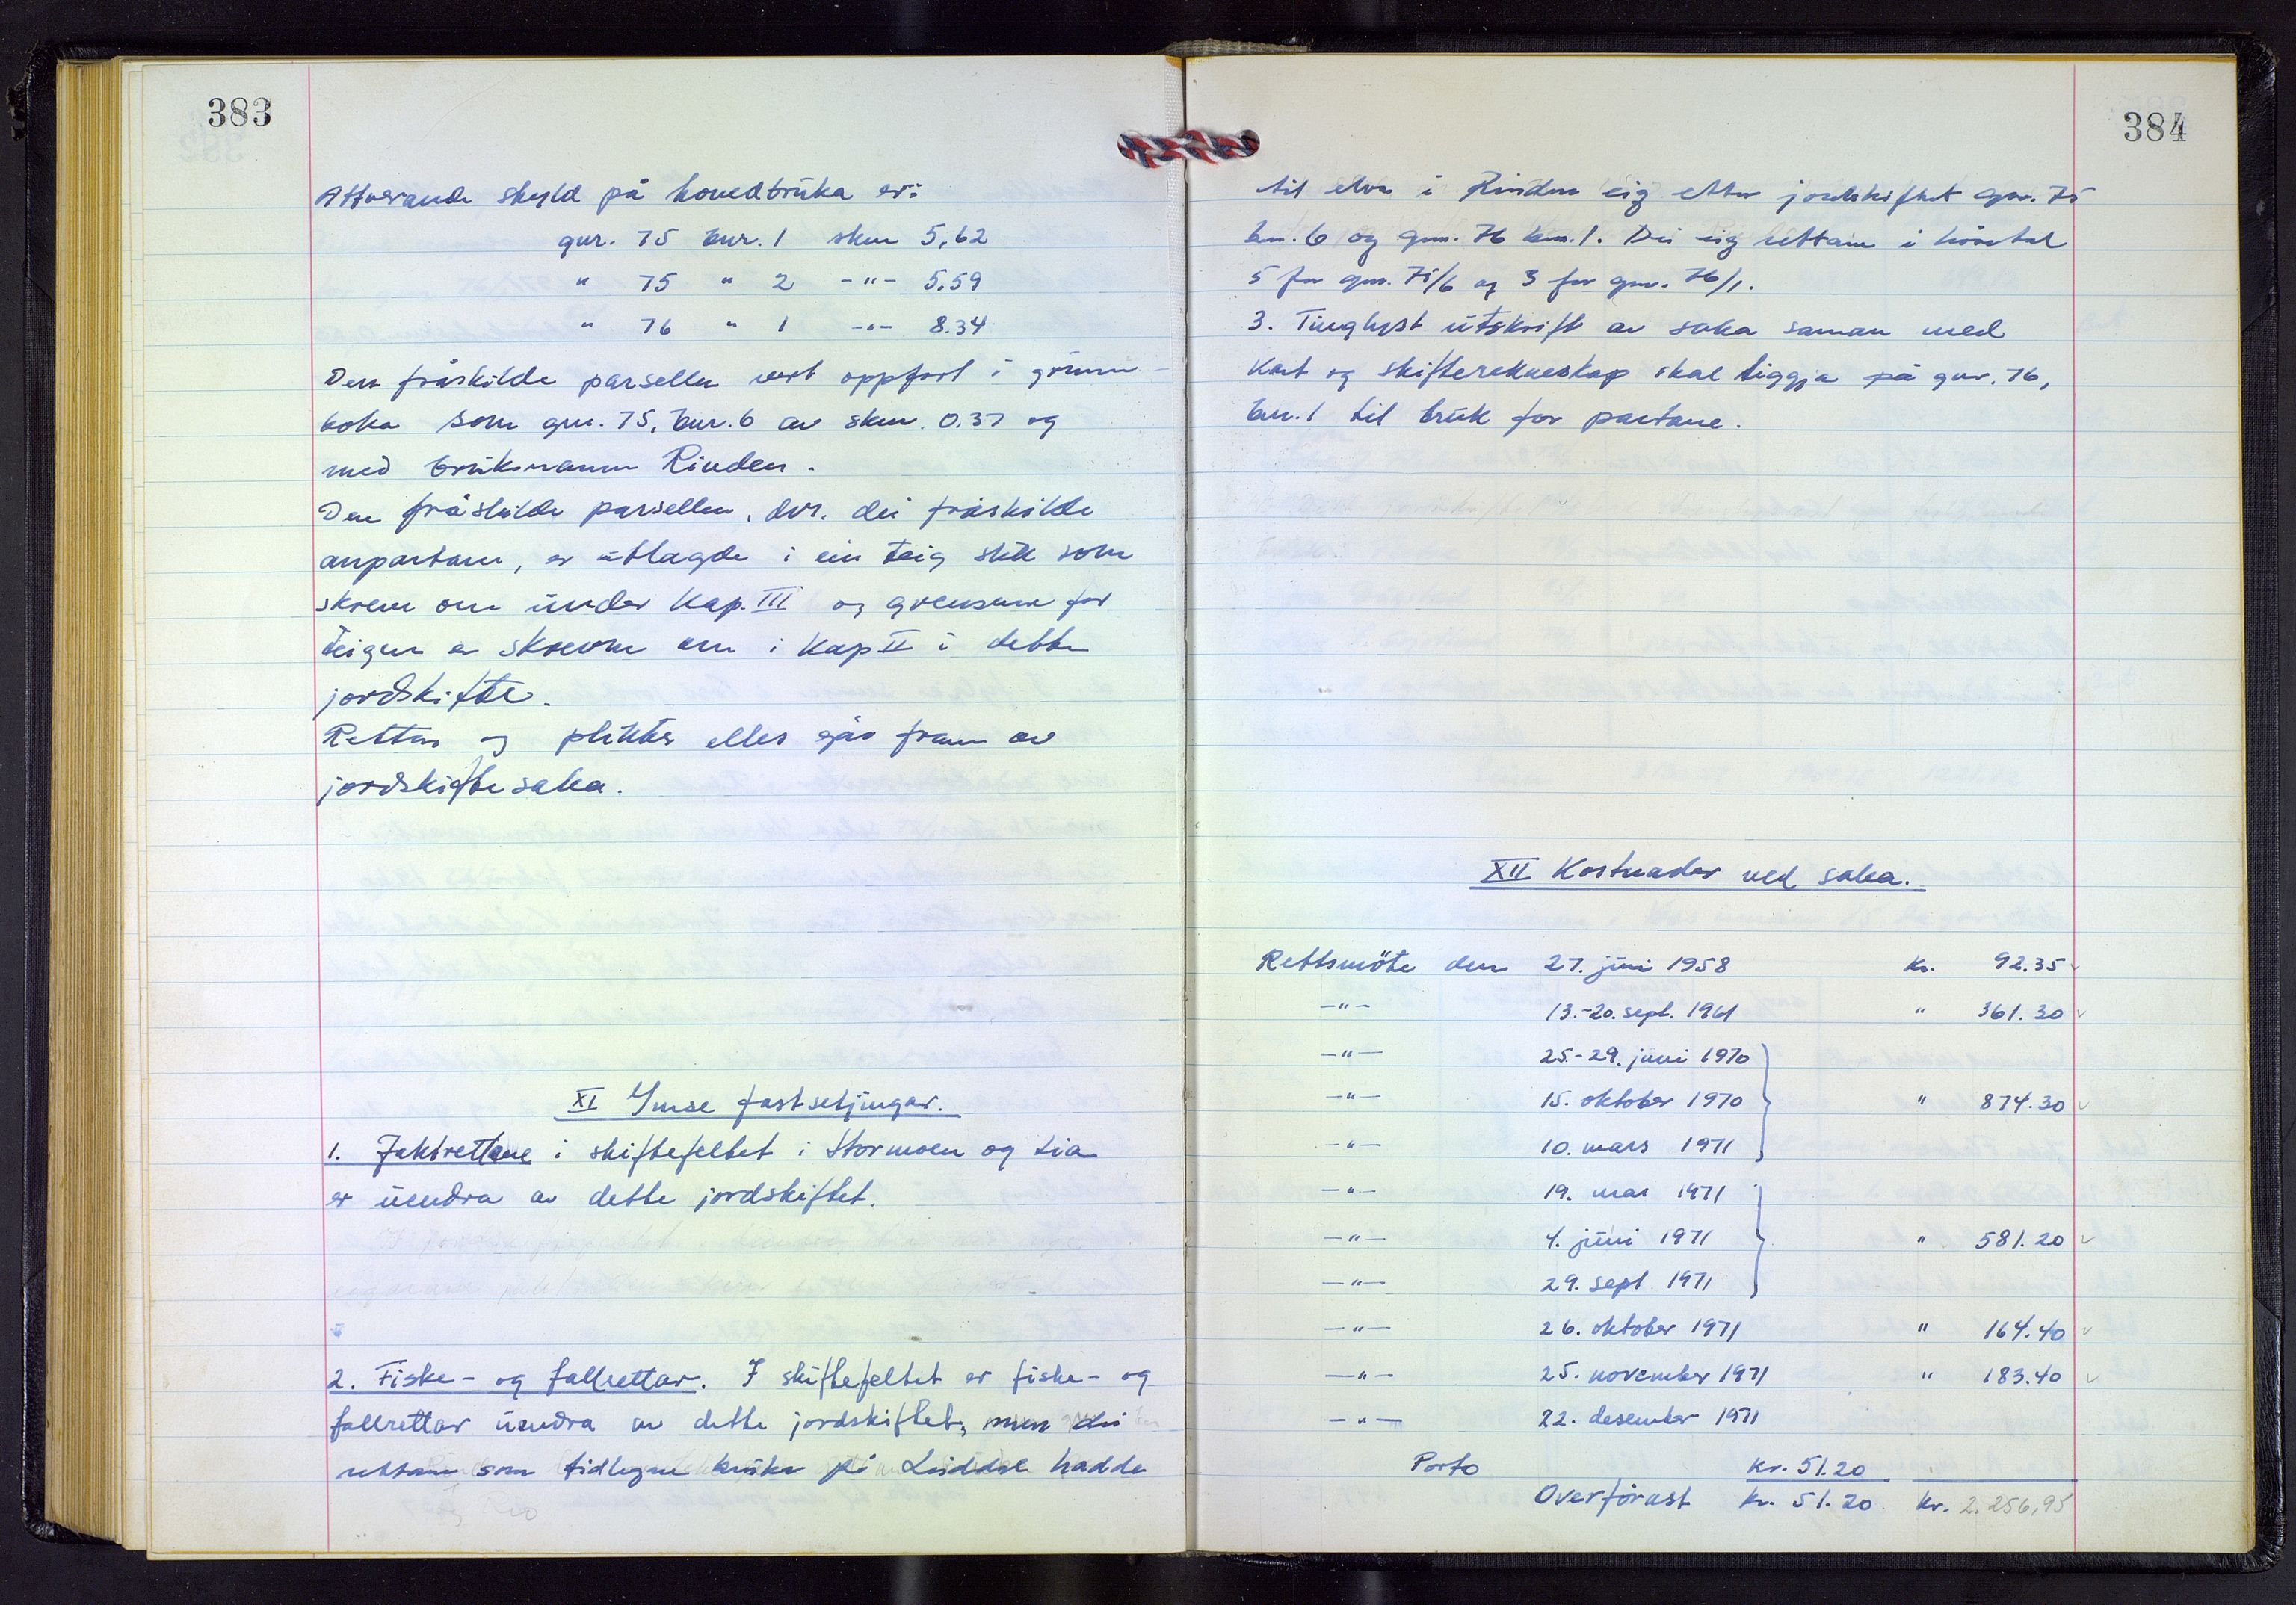 383
Attverande skyld på hovedbruka er:
gnr. 75 bnr. 1 skm 5,62
" 75 " 2 -"- 5.59
" 76 " 1 -"- 8.34
Den fråskilde parsellen vert oppført i grunn-
boka som gnr. 75, bnr. 6 av skm. 0.37 og
med bruksnamn Rinden.
Den fråskilde parsellen, dvs. dei fråskilde
anpartane, er utlagde i ein teig slik som
skreve om under Kap. III og grensene for
teigen er skrevne om i Kap II i dette
jordskifte.
Rettar og plikter elles går fram av
jordskiftesaka.
XI Ymse fastsetjingar.
1. Jaktrettane i skiftefeltet i Stormoen og Lia
er uendra av dette jordskiftet.
2. Fiske- og fallrettar. I skiftefeltet er fiske- og
fallrettar uendra av dette jordskiftet, men dei
rettane som tidlegare bruka på hadde
384
til elva i Rinden eig etter jordskiftet gnr. 75
bnr. 6 og gnr. 76 bnr. 1. Dei eig rettane i høvetal
5 for gnr. 75/6 og 3 for gnr. 76/1.
3. Tinglyst utskrift av saka saman med
Kart og skifterekneskap skal liggja på gnr. 76,
bnr. 1 til bruk for partane.
XII Kostnader ved saka.
Rettsmöte den 27. juni 1958 Kr. 92.35
-"- 13.-20. sept. 1961 " 361.30
-"- 25.-29. juni 1970
-"- 15. oktober 1970 " 874.30
-"- 10. mars 1971
-"- 19. mai 1971
-"- 4. juni 1971 " 581.20
-"- 29. sept 1971
-"- 26. oktober 1971 " 164.40
-"- 25. november 1971 " 183.40
-"- 22. desember 1971
Porto Kr. 51.20
Overførast Kr. 51.20 Kr. 2.256,95